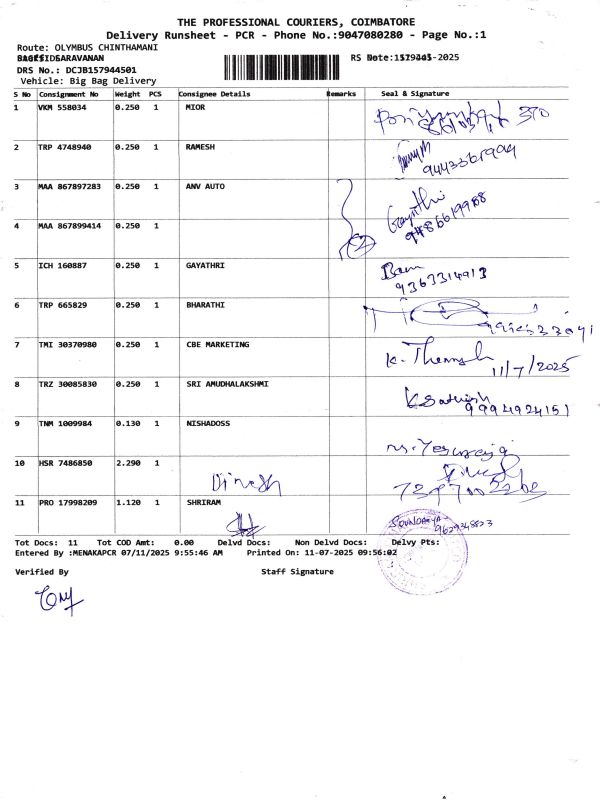 THE PROFESSIONAL COURIERS, COIMBATORE
Delivery Runsheet - PCR - Phone No.:9047080280 - Page No.:1
Route: OLYMBUS CHINTHAMANI
SARAVANAN
DRS No.: DCJB157944501
Vehicle: Big Bag Delivery
S No Consignment No Weight PCS Consignee Details Remarks Seal & Signature
1 VKM 558034 0.250 1 MIOR
2 TRP 4748940 0.250 1 RAMESH
9443361904
3 MAA 867897283 0.250 1 ANV AUTO
4 MAA 867899414 0.250 1
Gayathri
9486619988
5 ICH 160887 0.250 1 GAYATHRI
9363314913
6 TRP 665829 0.250 1 BHARATHI
7 TMI 30370980 0.250 1 CBE MARKETING
11/7/2025
8 TRZ 30085830 0.250 1 SRI AMUDHALAKSHMI
K Sathish
9994924151
9 TNM 1009984 0.130 1 NISHADOSS
10 HSR 7486850 2.290 1
Dinesh
11 PRO 17998209 1.120 1 SHRIRAM
SOUNDARYA
9629348823
Tot Docs: 11 Tot COD Amt: 0.00 Delvd Docs: Non Delvd Docs: Delvy Pts:
Entered By :MENAKAPCR 07/11/2025 9:55:46 AM Printed On: 11-07-2025 09:56:02
Verified By Staff Signature